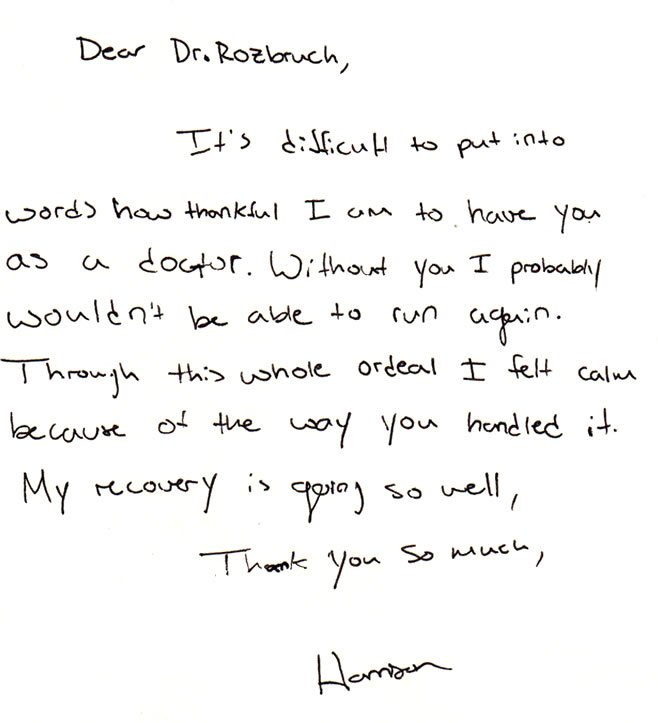 Dear Dr. Rozbruch,
It's difficult to put into
words how thankful I am to have you
as a doctor. Without you I probably
wouldn't be able to run again.
Through this whole ordeal I felt calm
because of the way you handled it.
My recovery is going so well,
Thank you so much,
Harrison